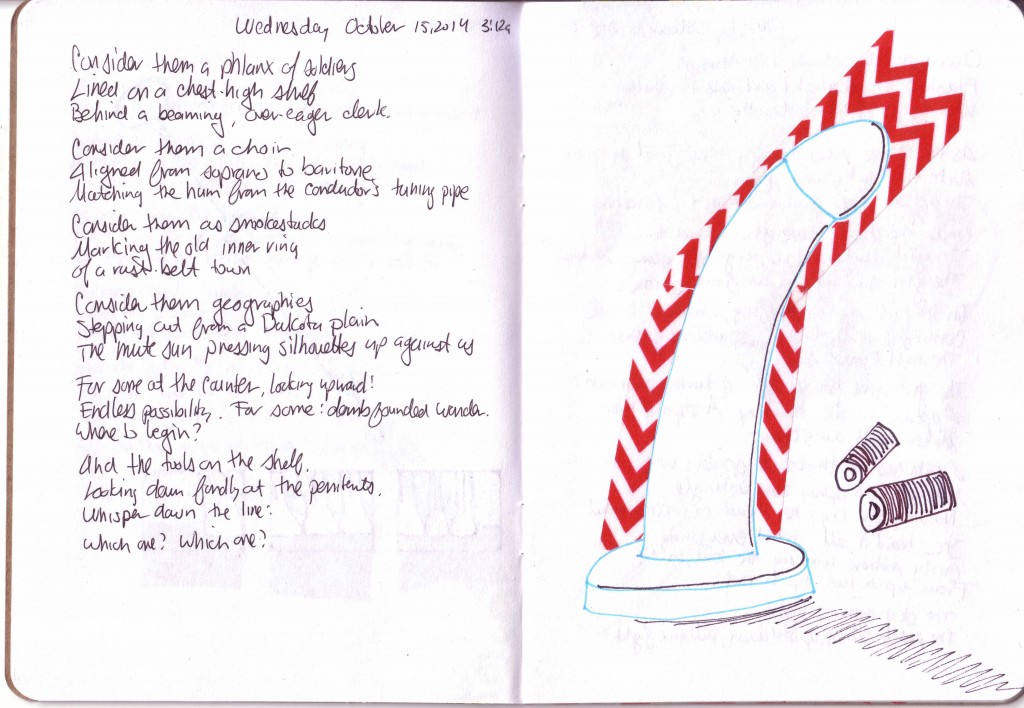 Wednesday October 15, 2014 3:12a
Consider them a phlanx of soldiers
Lined on a chest-high shelf
Behind a beaming, over-eager clerk.
Consider them a choir
Aligned from soprano to baritone
Matching the hum from the conductor's tuning pipe
Consider them as smokestacks
Marking the old inner ring
of a rust-belt town
Consider them geographies
Stepping out from a Dakota plain
The mute sun pressing silhouettes up against us
For some at the counter, looking upward!
Endless possibility. For some: dumbfounded wonder.
Where to begin?
And the tools on the shelf.
Looking down fondly at the penitents.
Whisper down the line:
Which one? Which one?